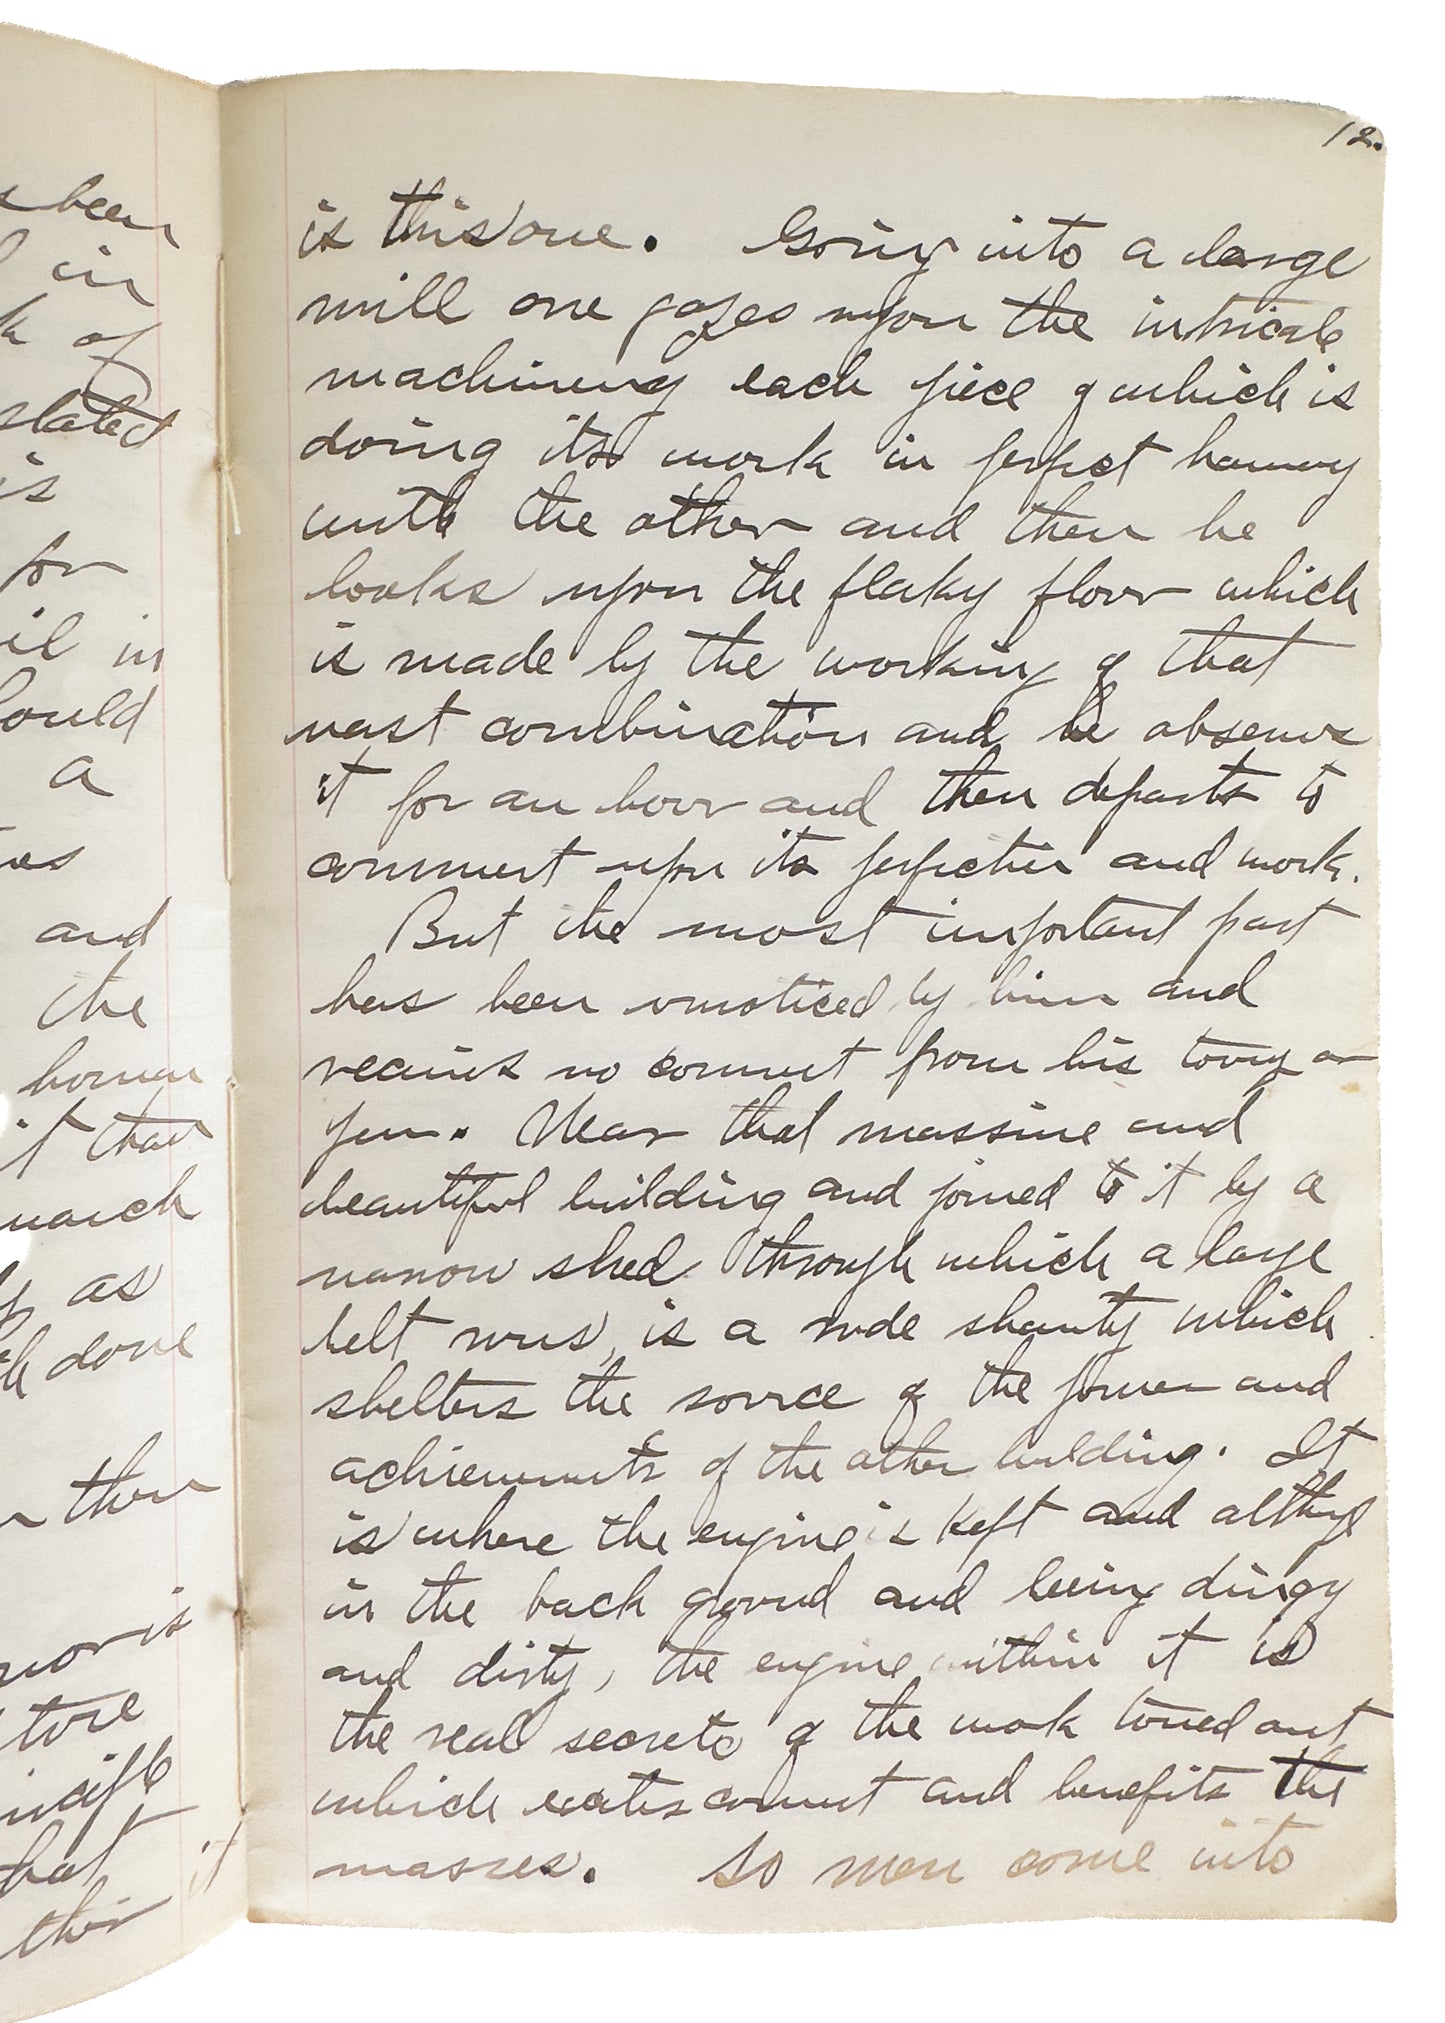 s been
in
k of
stated
is
for
il in
ould
a
es
and
the
human
it than
march
as
done
than
nor is
ture
hat it
their
12.
is this one. Going into a large
mill one gazes upon the intricate
machinery each piece of which is
doing its work in perfect harmony
with the other and then he
looks upon the flaky flour which
is made by the working of that
vast combination and he observes
it for an hour and then departs to
comment upon its perfection and work.
But the most important part
has been unnoticed by him and
receives no comment from his tong or
pen. Near that massive and
beautiful building and joined to it by a
narrow shed through which a large
belt runs, is a rude shanty which
shelters the source of the power and
achievements of the other building. It
is where the engine is kept and although
in the back ground and being dingy
and dirty, the engine within it is
the real secrets of the work turned out
which excites comment and benefits the
masses. So men come into